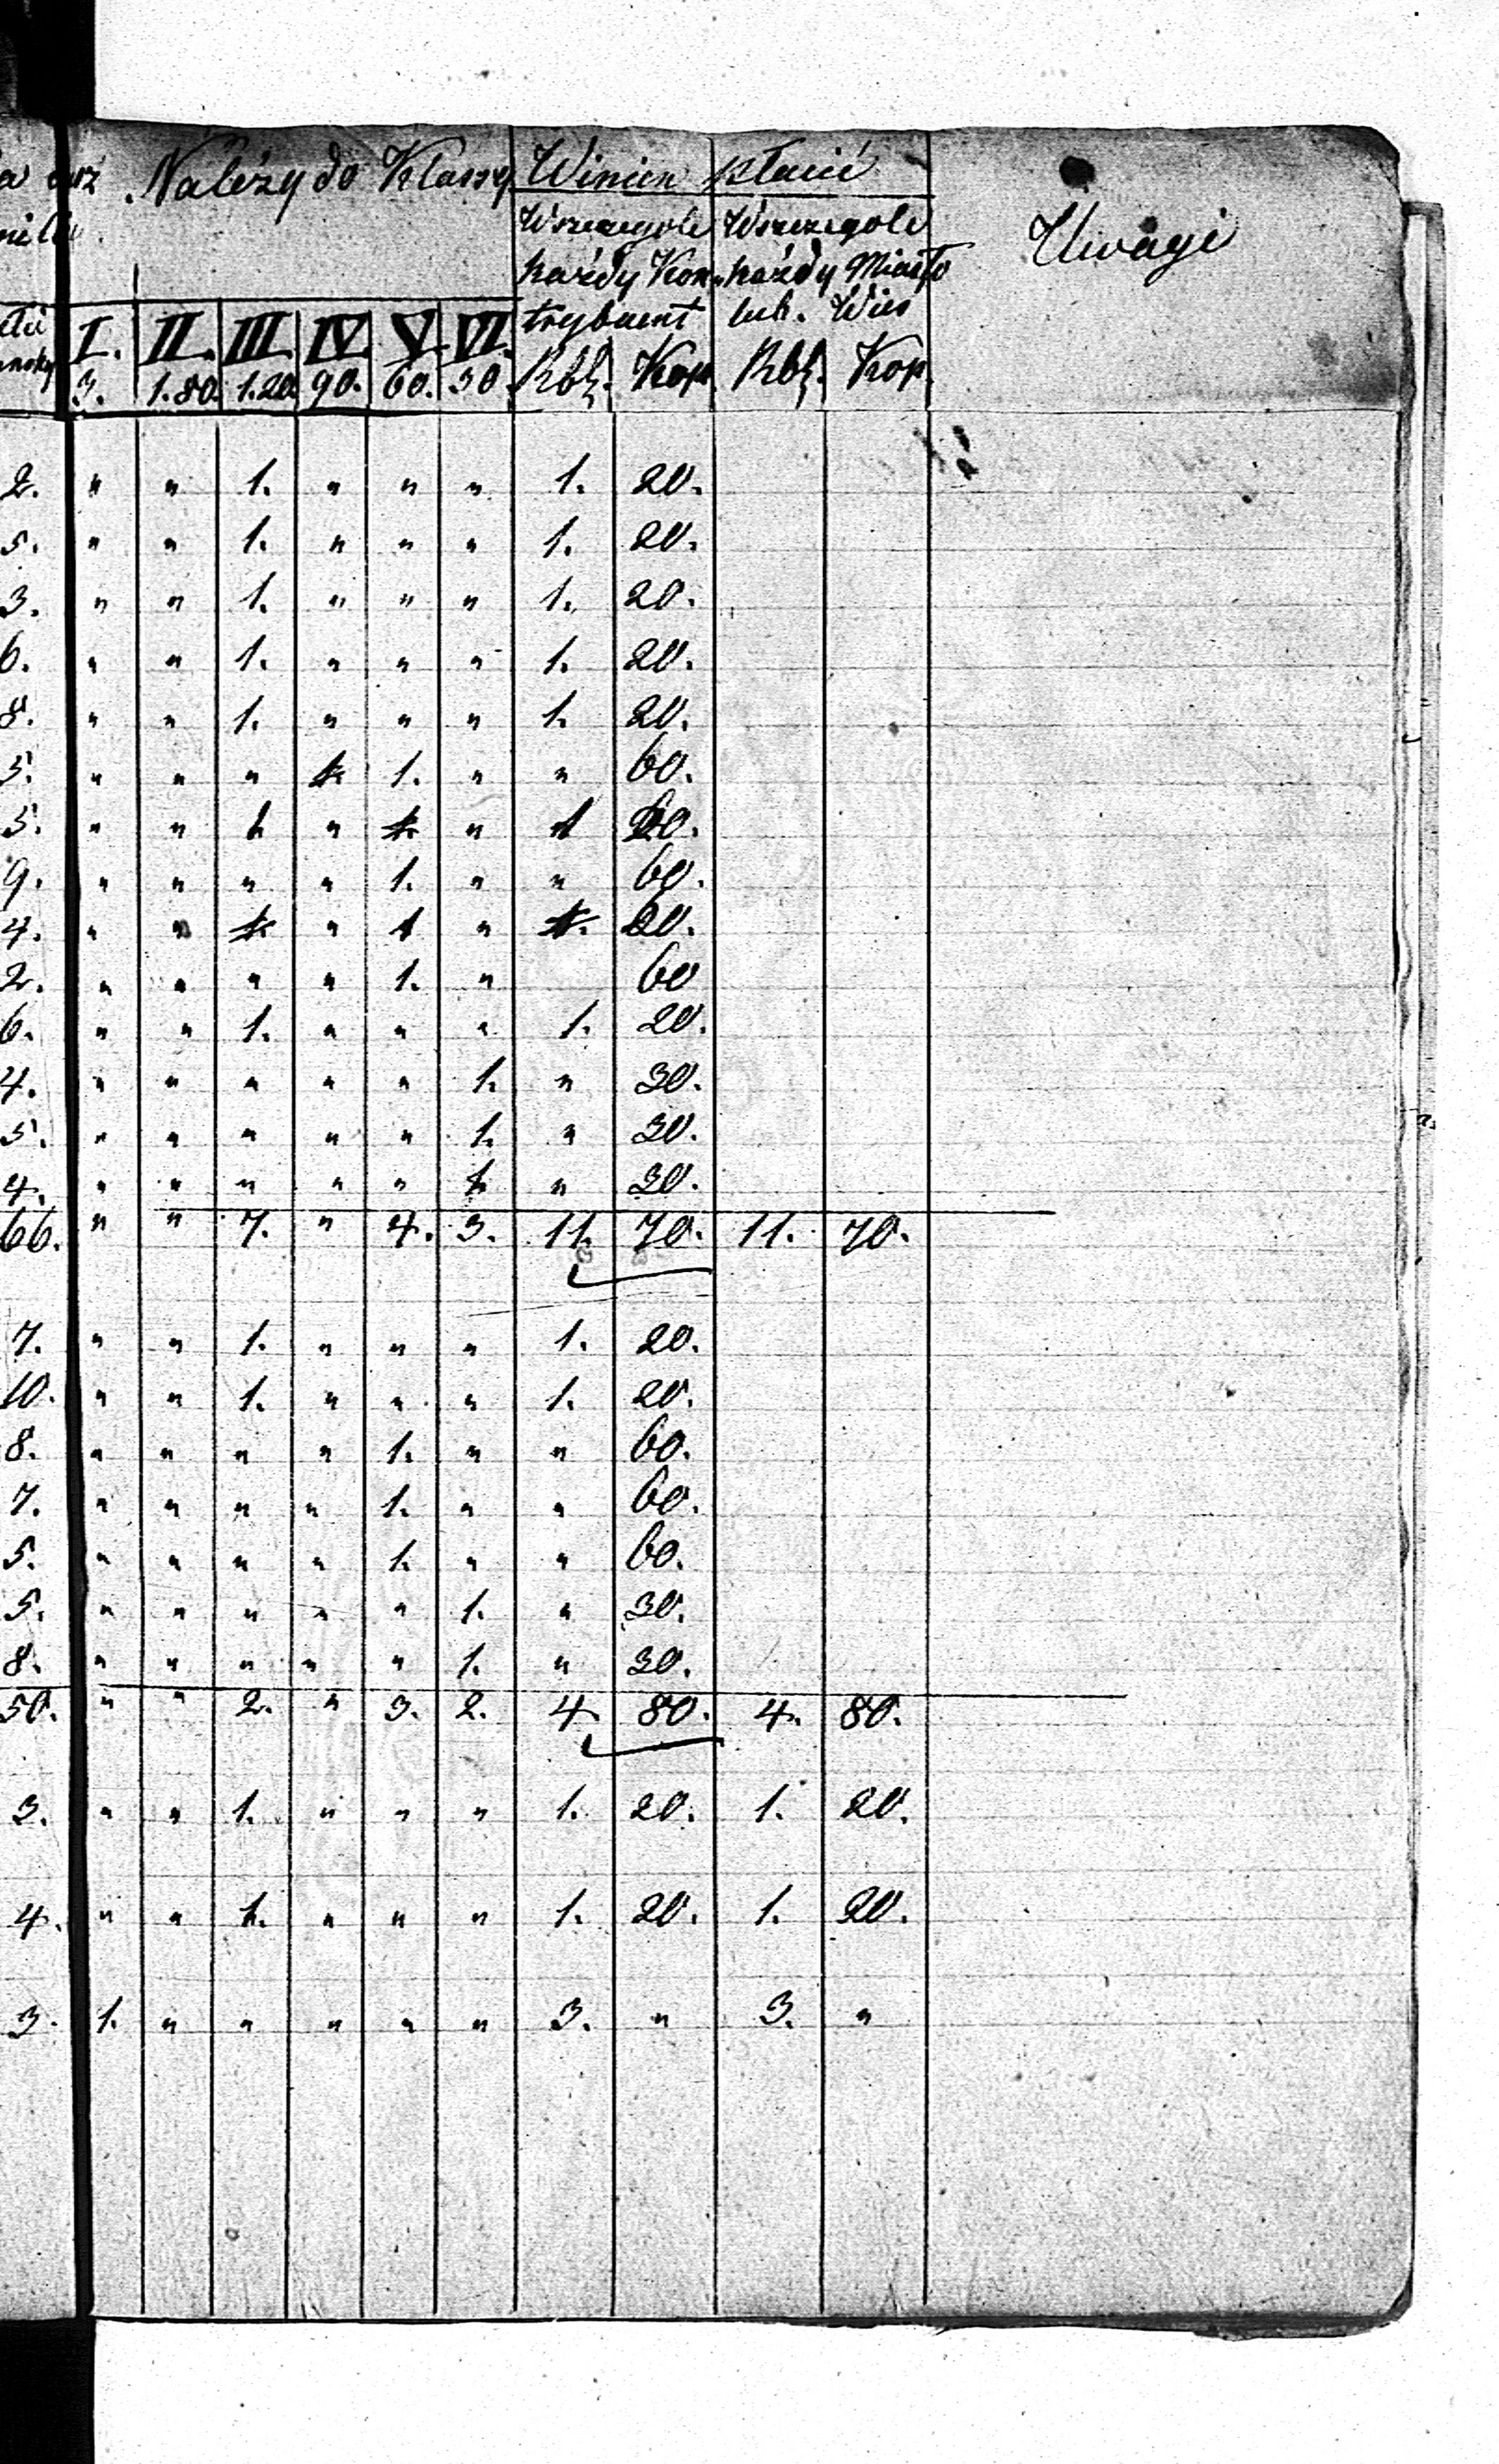 Należy do Klassy Winien płacić
Wszczególe Wszczególe Uwagi
każdy Kon- każdy Miasto
I. II. III. IV. V. VI. trybuent lub. Wieś
3. 1.80. 1.20. 90. 60. 30. Rbł. Kop. Rbł. Kop.
2. " " 1. " " " 1. 20.
5. " " 1. " " " 1. 20.
3. " " 1. " " " 1. 20.
6. " " 1. " " " 1. 20.
8. " " 1. " " " 1. 20.
5. " " " 1. " " 60.
5. " " 1. " " 1 20.
9. " " " " 1. " " 60.
4. " " " 1 " 60.
2. " " " " 1. " 60
6. " " 1. " " " 1. 20.
4. " " " " " 1. " 30.
5. " " " " " 1. " 30.
4. " " " " " 1. " 30.
66. " " 7. " 4. 3. 11. 70. 11. 70.
7. " " 1. " " " 1. 20.
10. " " 1. " " " 1. 20.
8. " " " " 1. " " 60.
7. " " " " 1. " " 60.
5. " " " " 1. " " 60.
5. " " " " " 1. " 30.
8. " " " " " 1. " 30.
50. " " 2. " 3. 2. 4. 80. 4. 80.
3. " " 1. " " " 1. 20. 1. 20.
4. " " 1. " " " 1. 20. 1. 20.
3. 1. " " " " " 3. " 3. "